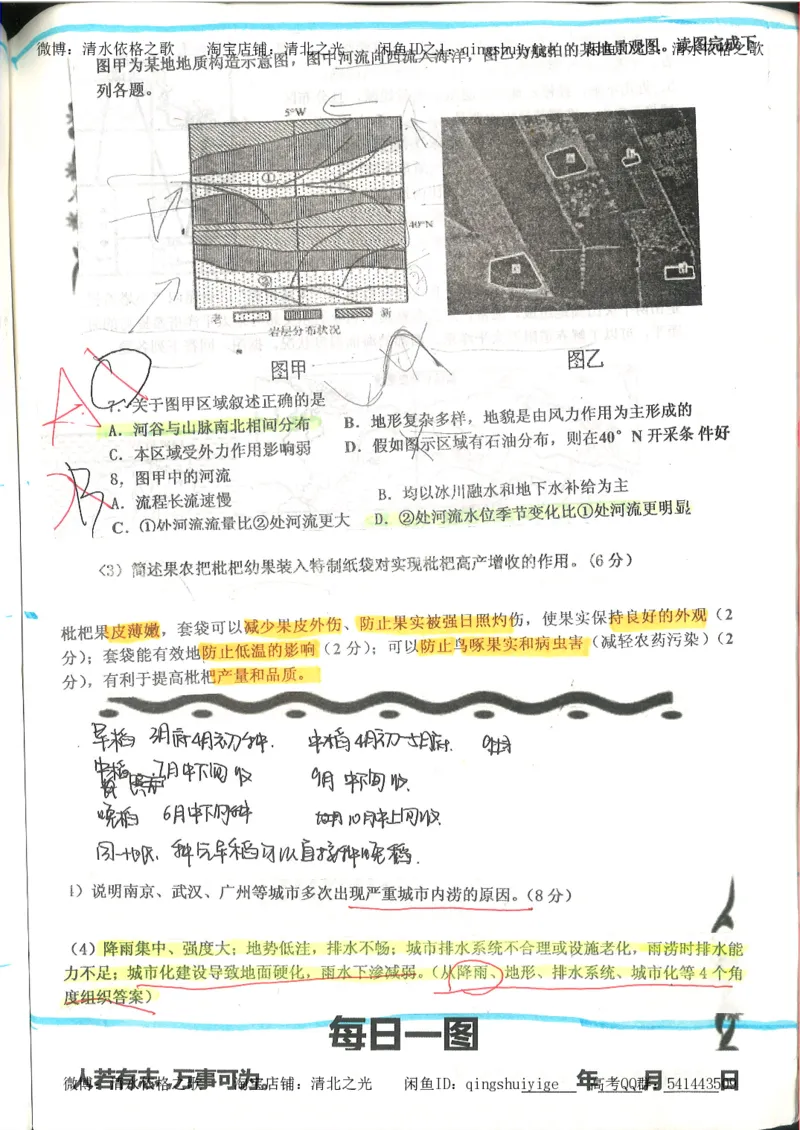 微博：清水依格之歌 淘宝店铺：清北之光 闲鱼ID：qingshuiyige
图甲为某地地质构造示意图，图中河流向西流入海洋，图乙为航拍的某地景观图。读图完成下
列各题。
5°W
①
40°N
②
老 新
岩层分布状况
图甲 图乙
7．关于图甲区域叙述正确的是
A．河谷与山脉南北相间分布 B．地形复杂多样，地貌是由风力作用为主形成的
C．本区域受外力作用影响弱 D．假如图示区域有石油分布，则在40°N开采条件好
8，图甲中的河流
A．流程长流速慢 B．均以冰川融水和地下水补给为主
C．①处河流流量比②处河流更大 D．②处河流水位季节变化比①处河流更明显
<3）简述果农把枇杷幼果装入特制纸袋对实现枇杷高产增收的作用。(6分）
枇杷果皮薄嫩，套袋可以减少果皮外伤、防止果实被强日照灼伤，使果实保持良好的外观（2
分）；套袋能有效地防止低温的影响（2分）；可以防止鸟啄果实和病虫害（减轻农药污染）（2
分），有利于提高枇杷产量和品质。
早稻 3月底4月初种． 中稻4月初-5月底．
中稻 7月中下旬收 9月中下旬收．
晚稻 6月中下旬种 10月中上旬收．
1）说明南京、武汉、广州等城市多次出现严重城市内涝的原因。（8分）
（4）降雨集中、强度大；地势低洼，排水不畅；城市排水系统不合理或设施老化，雨涝时排水能
力不足；城市化建设导致地面硬化，雨水下渗减弱。（从降雨、地形、排水系统、城市化等4个角
度组织答案）
每日一图 2
人若有志，万事可为。 年 月 日
微博：清水依格之歌 淘宝店铺：清北之光 闲鱼ID：qingshuiyige 高考QQ群：541443509